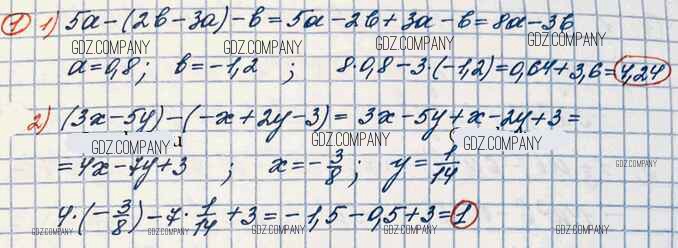 1) 1) 5a-(2b-3a)-b=5a-2b+3a-b=8a-3b
GDZ.COMPANY GDZ.COMPANY GDZ.COMPANY GDZ.COMPANY
a=0,8; b=-1,2 ; 8·0,8-3·(-1,2)=0,64+3,6=4,24
2) (3x-5y)-(-x+2y-3)= 3x-5y+x-2y+3=
GDZ.COMPANY GDZ.COMPANY GDZ.COMPANY
=4x-7y+3 ; x=-3/8; y=1/14
GDZ.COMPANY GDZ.COMPANY GDZ.COMPANY GDZ.COMPANY
4·(-3/8)-7·1/14+3=-1,5-0,5+3=1
GDZ.COMPANY GDZ.COMPANY GDZ.COMPANY GDZ.COMPANY GDZ.COMPANY